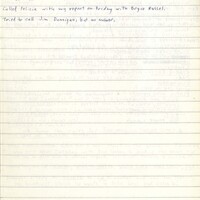 Called Felicia with my report on Friday with Boyce Russel.
Tried to call Jim. Dunnigan, but no answer.